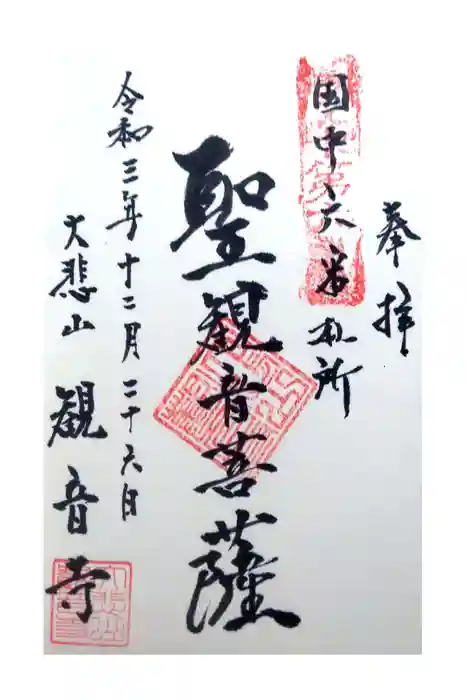 奉拝
国中十六番札所
聖観音菩薩
令和三年十二月二十六日
大悲山 観音寺